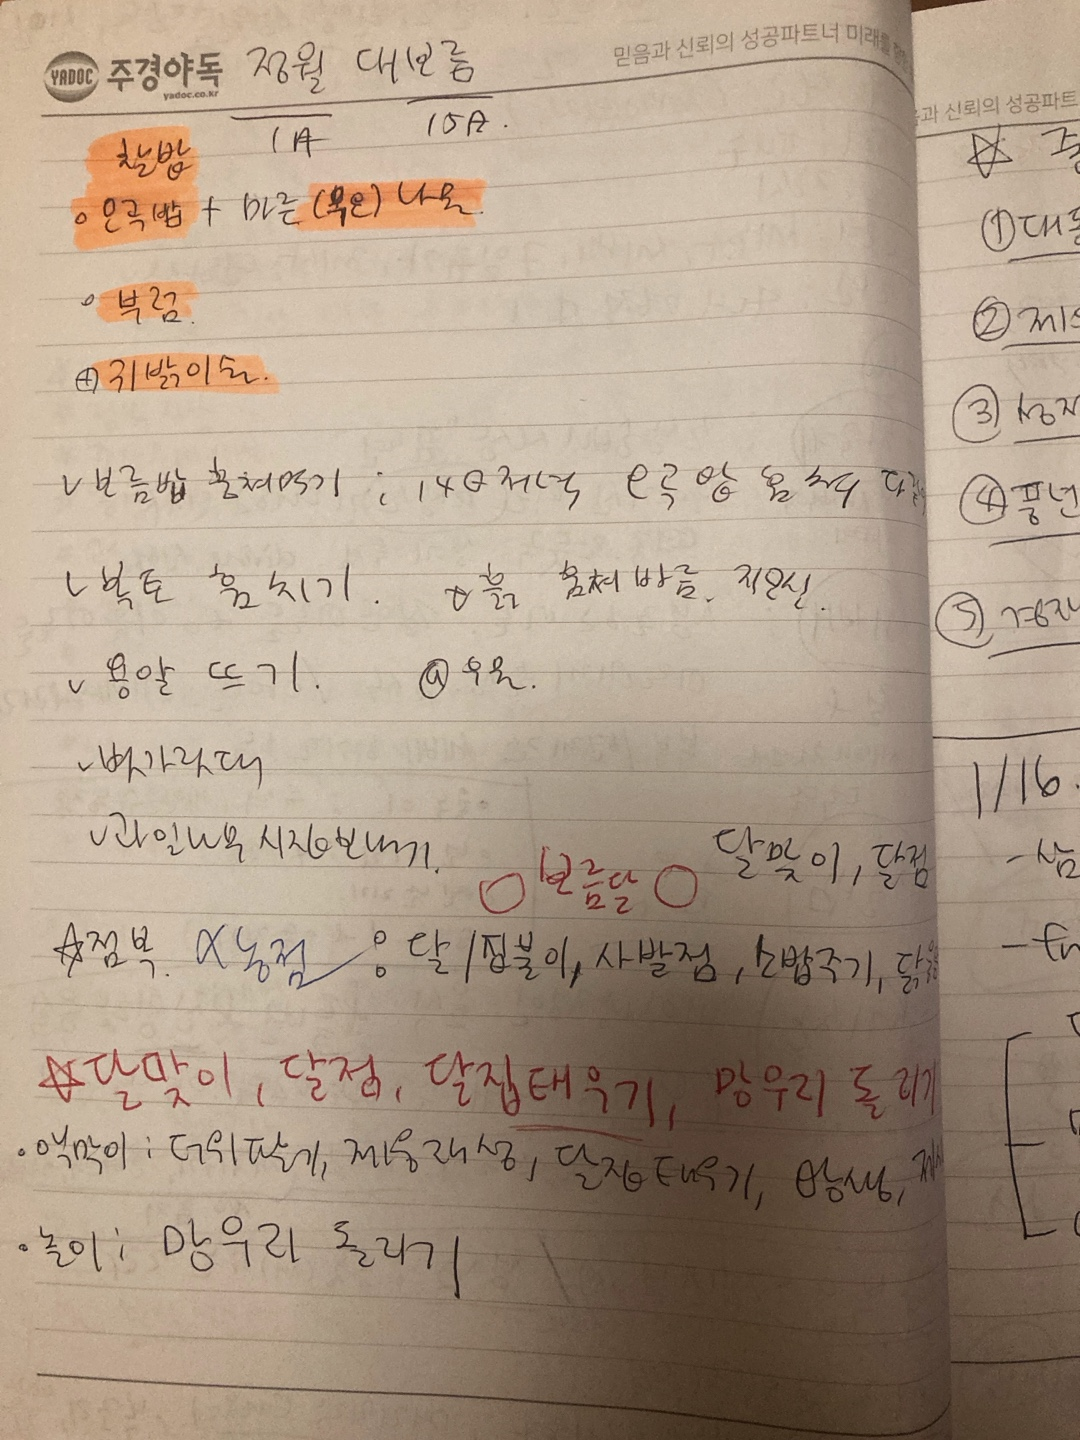 YADOC 주경야독 정월 대보름
yadoc.co.kr
믿음과 신뢰의 성공파트너 미래를
1月 15日.
찰밥
오곡밥 + 마른 (묵은) 나물
부럼.
⊕ 귀밝이술.
✓보름밥 훔쳐먹기 : 14日저녁 오곡밥 훔쳐
✓복토 훔치기. ☆흙 훔쳐 바름. 지운신.
✓용알 뜨기. 우물.
✓볏가릿대
✓과일나무 시집보내기.
○ 보름달 ○ 달맞이, 달점
☆점복. 농점 달/집불이, 사발점, 소밥주기,
☆달맞이, 달점, 달집태우기, 망우리 돌리기
·액막이 : 더위팔기, 제웅 달집태우기, 방생,
·놀이 : 망우리 돌리기
과 신뢰의 성공파트
☆
①대동
②제의
③
④풍년
⑤
1/16.